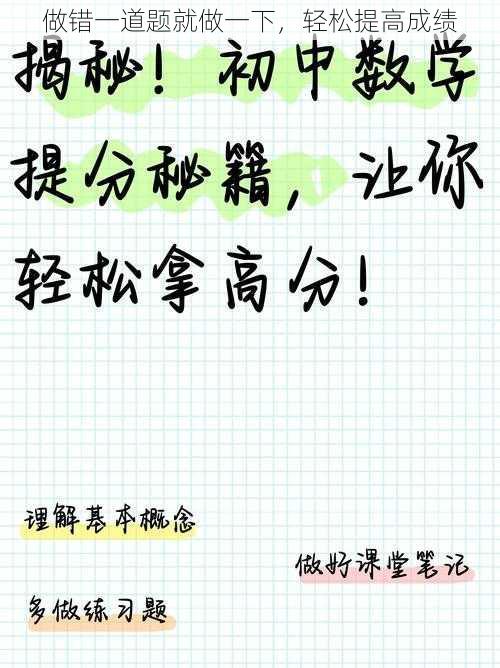 做错一道题就做一下，轻松提高成绩
揭秘！初中数学
提分秘籍，让你
轻松拿高分！
理解基本概念
做好课堂笔记
多做练习题